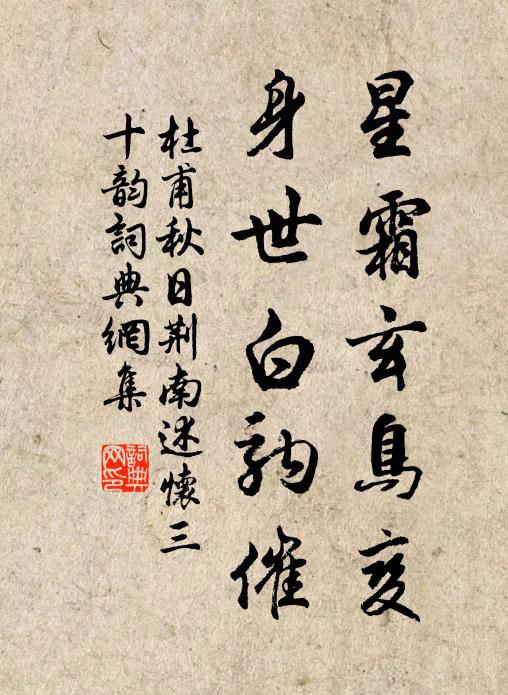 星霜玄鳥變
身世白駒催
杜甫秋日荆南述懷三
十韵詞典網集
詞典网印